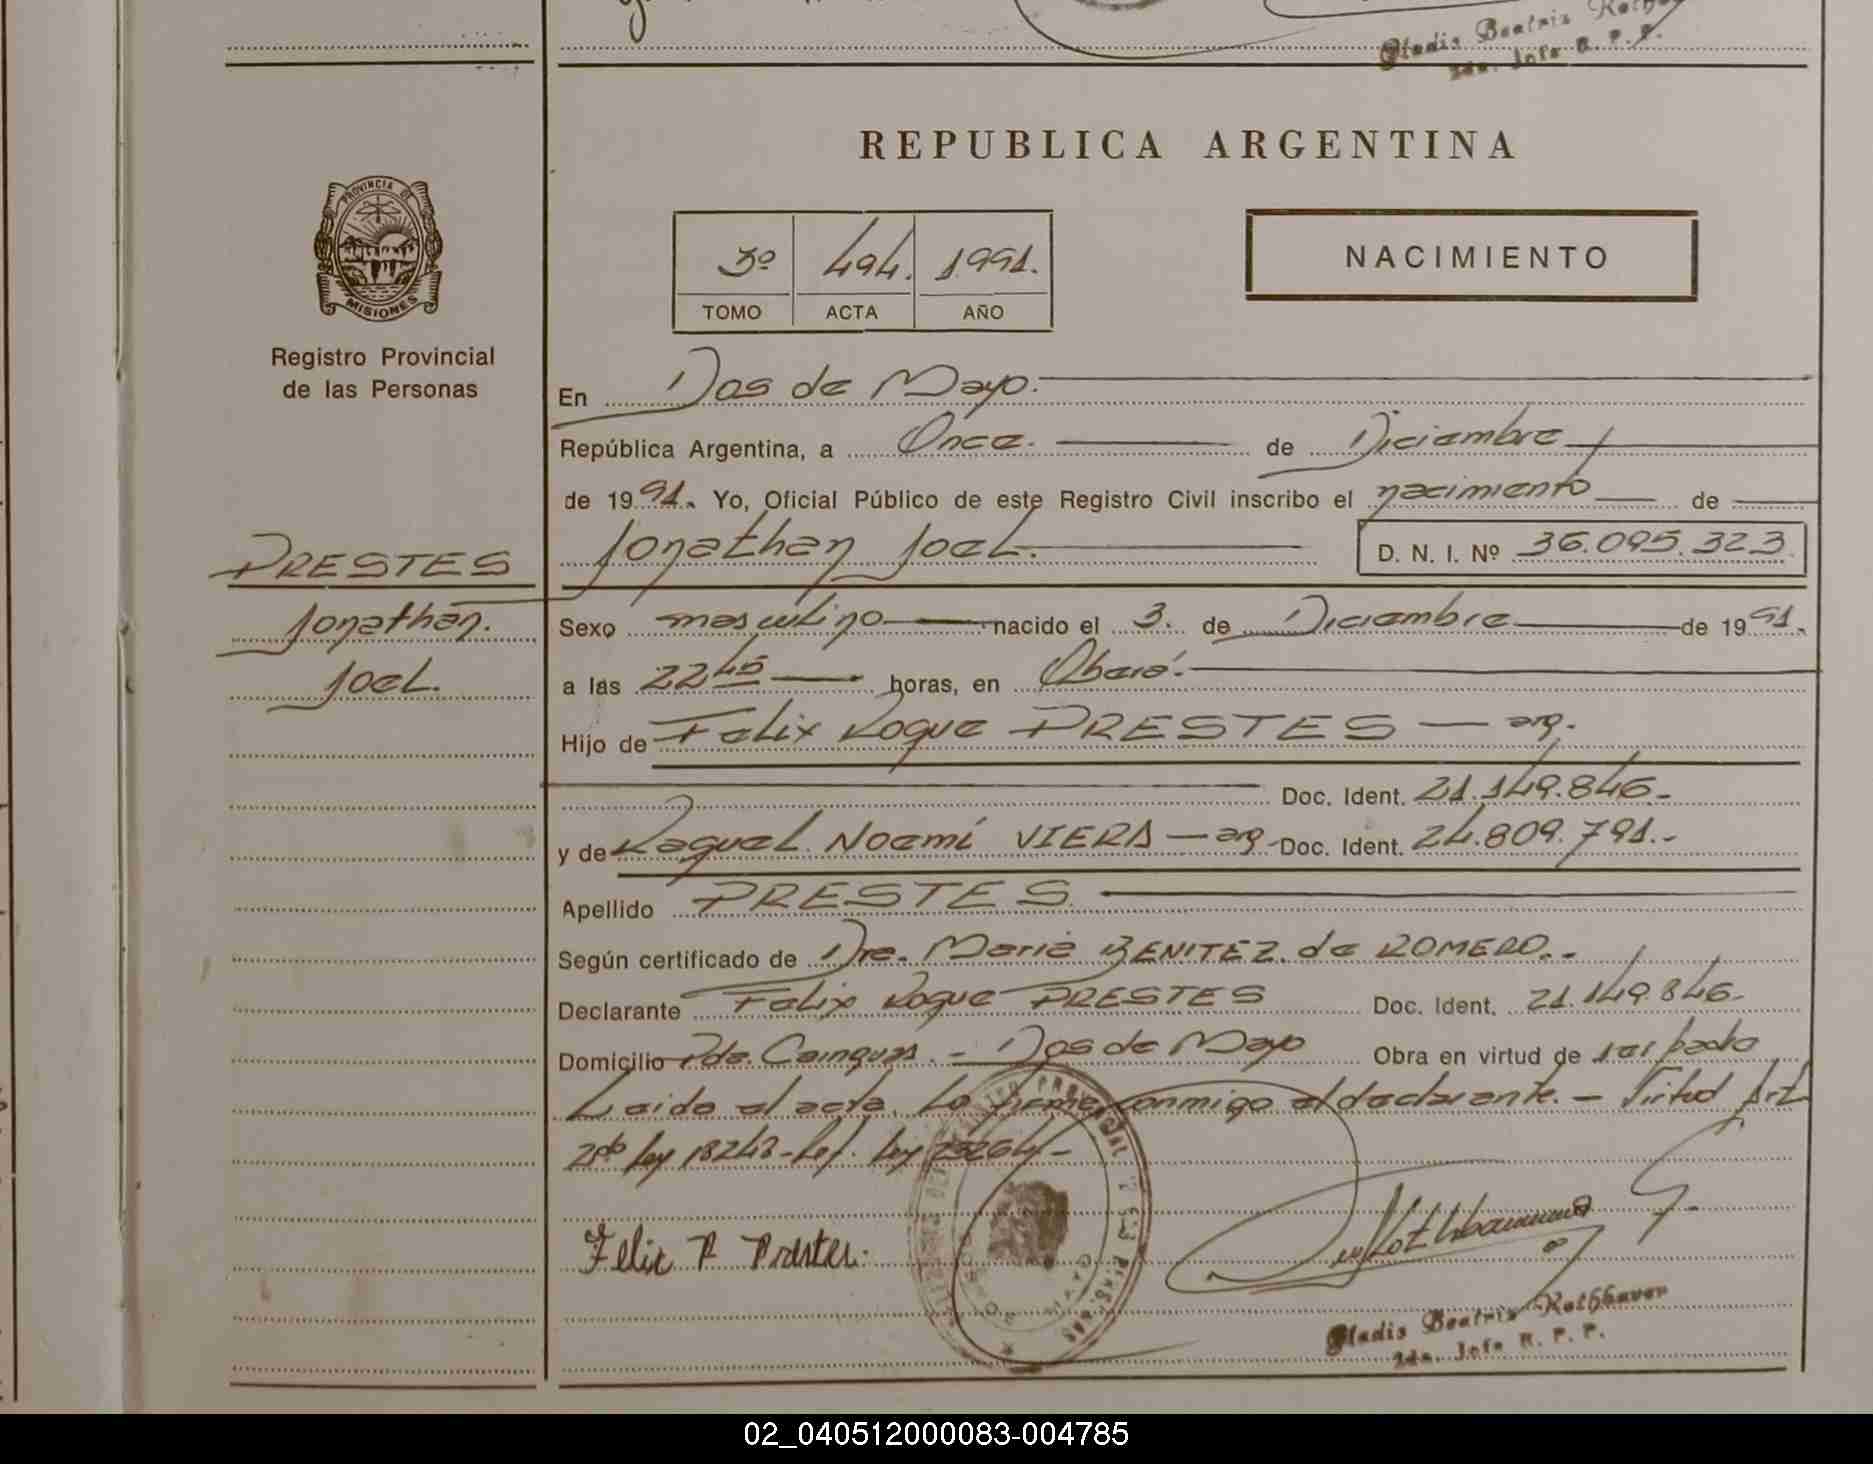 Gladis Beatriz
2da. Jefe R. P. P.
REPUBLICA ARGENTINA
PROVINCIA DE
MISIONES
3º 494. 1991.
TOMO ACTA AÑO
NACIMIENTO
Registro Provincial
de las Personas
En Dos de Mayo.
República Argentina, a Once. de Diciembre
de 1991. Yo, Oficial Público de este Registro Civil inscribo el nacimiento de
Jonathan Joel. D. N. I. Nº 36.095.323.
PRESTES
Jonathan.
Joel.
Sexo masculino nacido el 3. de Diciembre de 1991.
a las 22 45 horas, en Oberá.
Hijo de Felix Roque PRESTES — arg.
Doc. Ident. 21.149.846.-
y de Raquel Noemí VIERA — arg. Doc. Ident. 24.809.791.-
Apellido PRESTES
Según certificado de Dra. Maria BENITEZ de ROMERO..-
Declarante Felix Roque PRESTES Doc. Ident. 21.149.846.-
Domicilio Pda. Cainguas. - Dos de Mayo Obra en virtud de
Leida el acta. La firma conmigo el declarante. - Virtud Art
2do ley 18248 - Ref. ley 23264 -
Felix R Prestes.
Gladis Beatriz Rothbaver
2da. Jefe R. P. P.
02_040512000083-004785